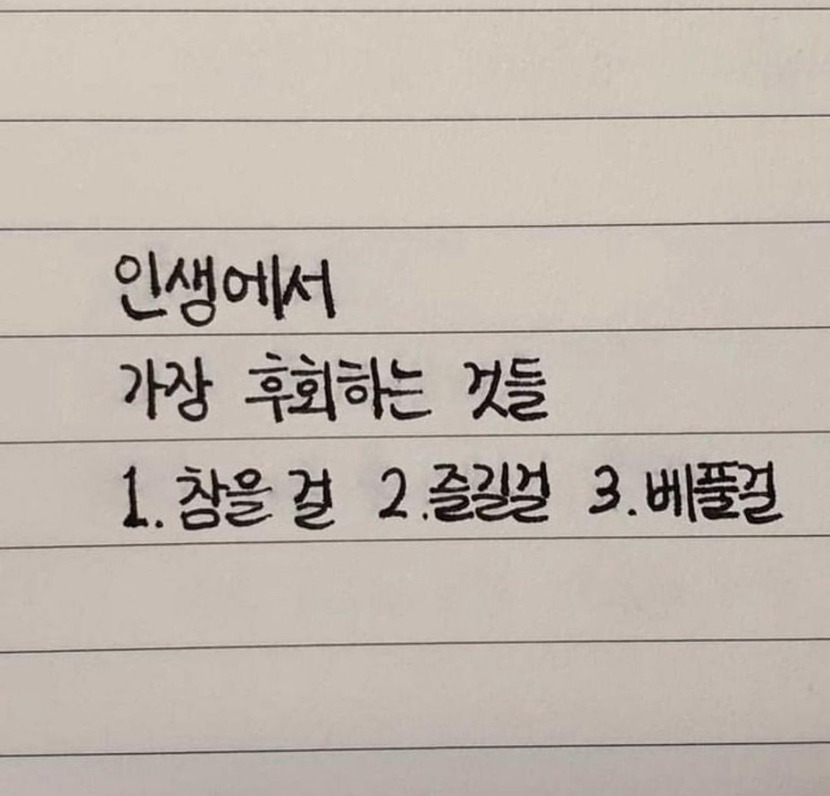 인생에서
가장 후회하는 것들
1. 참을 걸 2.즐길걸 3.베풀걸